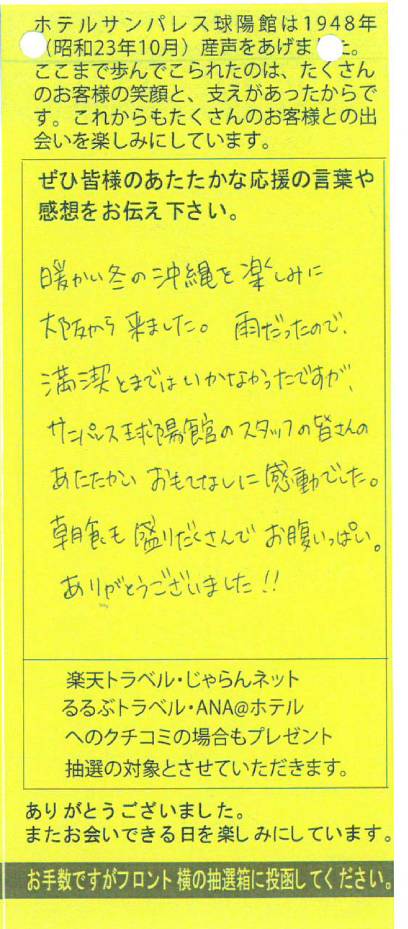 ホテルサンパレス球陽館は1948年
（昭和23年10月）産声をあげました。
ここまで歩んでこられたのは、たくさん
のお客様の笑顔と、支えがあったからで
す。これからもたくさんのお客様との出
会いを楽しみにしています。
ぜひ皆様のあたたかな応援の言葉や
感想をお伝え下さい。
暖かい冬の沖縄を楽しみに
大阪から来ました。雨だったので、
満喫とまではいかなかったですが、
サンパレス球陽館のスタッフの皆さんの
あたたかい おもてなしに感動でした。
朝食も盛りだくさんで お腹いっぱい。
ありがとうございました!!
楽天トラベル・じゃらんネット
るるぶトラベル・ANA@ホテル
へのクチコミの場合もプレゼント
抽選の対象とさせていただきます。
ありがとうございました。
またお会いできる日を楽しみにしています。
お手数ですがフロント横の抽選箱に投函してください。